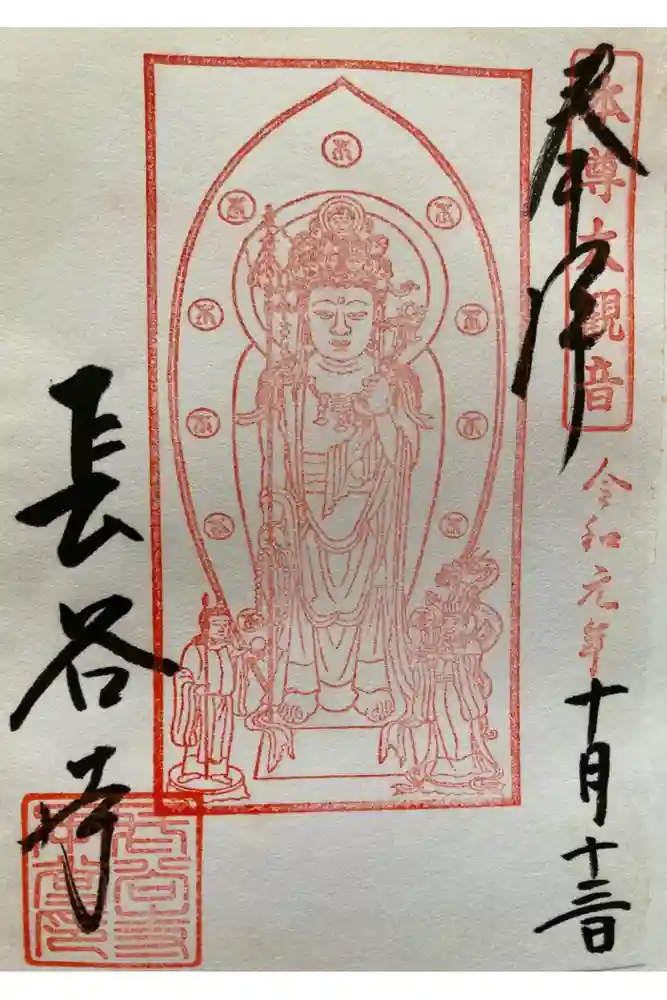 奉拝
本尊大観音
令和元年
十月十三日
長谷寺